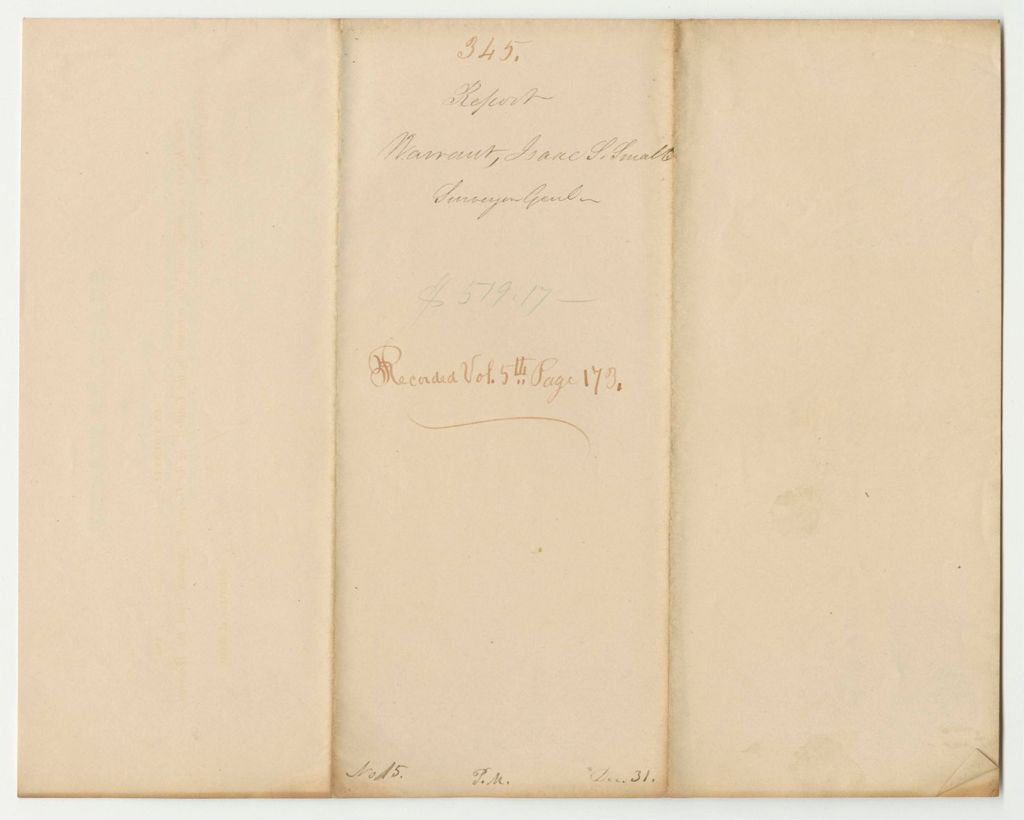 345.
Report
Warrant, Isaac S. Small
Surveyor Genl.
$ 519.17 —
Recorded Vol. 5th. Page 173.
No 15. P.M. Dec. 31.